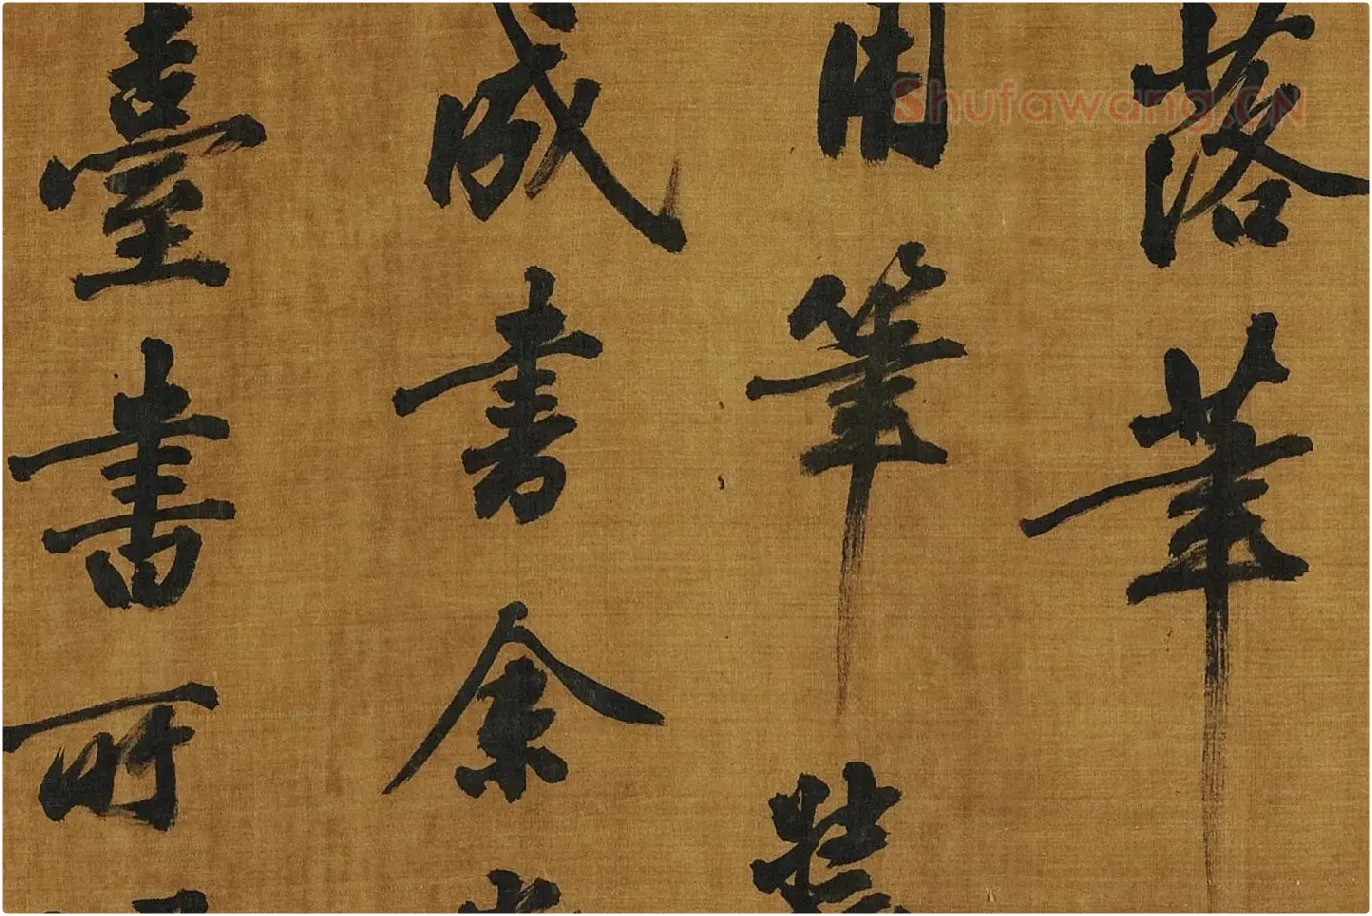 落筆
筆
成書余
臺書所
Shufawang.CN